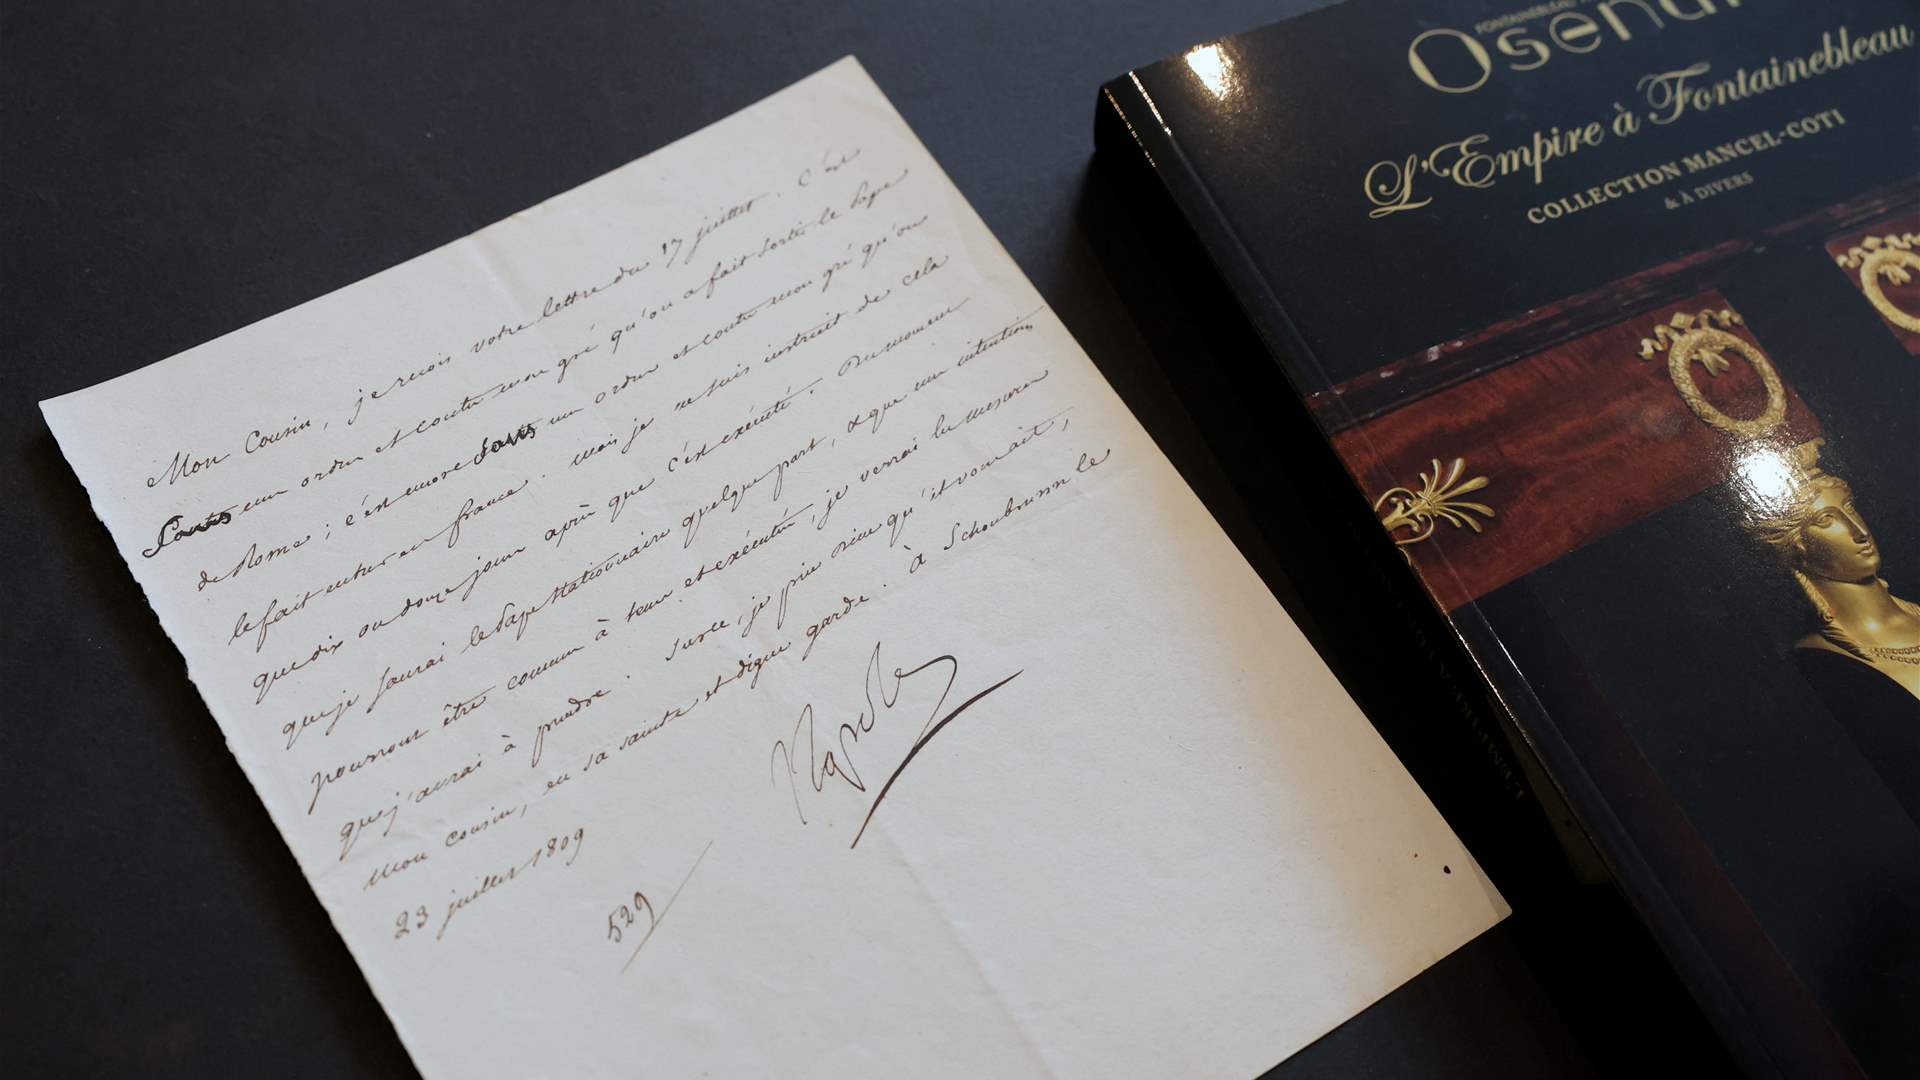 Mon Cousin, je reçois votre lettre du 17 juillet. C'est
sans mon ordre et contre mon gré qu'on a fait sortir le Pape
de Rome ; c'est encore sans mon ordre et contre mon gré qu'on
le fait entrer en france. mais je ne suis instruit de cela
que dix ou douze jours après que c'est exécuté. Du moment
que je saurai le Pape stationnaire quelque part, & que mes intentions
pourront être connues à tems et exécutées, je verrai les mesures
que j'aurai à prendre. Sur ce, je prie Dieu qu'il vous ait,
mon cousin, en sa sainte et digne garde. à Schonbrunn le
23 juillet 1809
Napole
529
FONTAINEBLEAU
Osenat
L'Empire à Fontainebleau
COLLECTION MANCEL-COTI
& À DIVERS